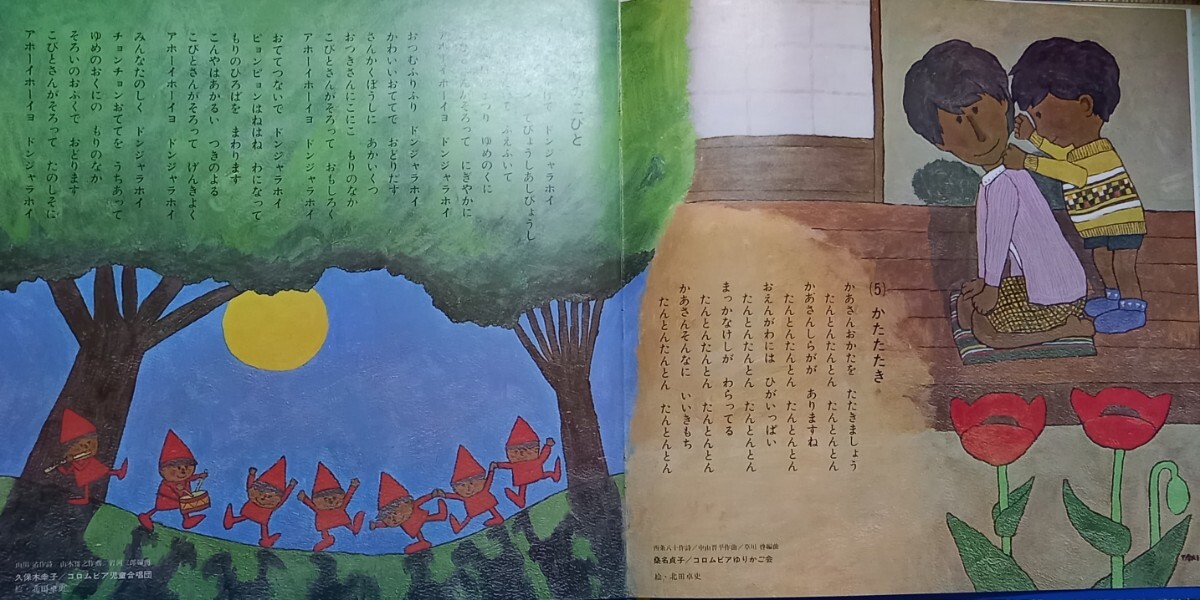 こびと
ドンジャラホイ
てびょうしあしびょうし
ふえふいて
ゆめのくに
そろって にぎやかに
アホーイホーイヨ ドンジャラホイ
おつむふりふり ドンジャラホイ
かわいいおててで おどりだす
さんかくぼうしに あかいくつ
おつきさんにこにこ もりのなか
こびとさんがそろって おもしろく
アホーイホーイヨ ドンジャラホイ
おててつないで ドンジャラホイ
ピョンピョンはねはね わになって
もりのひろばを まわります
こんやはあかるい つきのよる
こびとさんがそろって げんきよく
アホーイホーイヨ ドンジャラホイ
みんなたのしく ドンジャラホイ
チョンチョンおててを うちあって
ゆめのおくにの もりのなか
そろいのおふくで おどります
こびとさんがそろって たのしそに
アホーイホーイヨ ドンジャラホイ
久保木幸子/コロムビア児童合唱団
絵・北田卓史
(5) かたたたき
かあさんおかたを たたきましょう
たんとんたんとん たんとんとん
かあさんしらがが ありますね
たんとんたんとん たんとんとん
おえんがわには ひがいっぱい
たんとんたんとん たんとんとん
まっかなけしが わらってる
たんとんたんとん たんとんとん
かあさんそんなに いいきもち
たんとんたんとん たんとんとん
西条八十作詩/中山晋平作曲/草川啓編曲
桑名貞子/コロムビアゆりかご会
絵・北田卓史